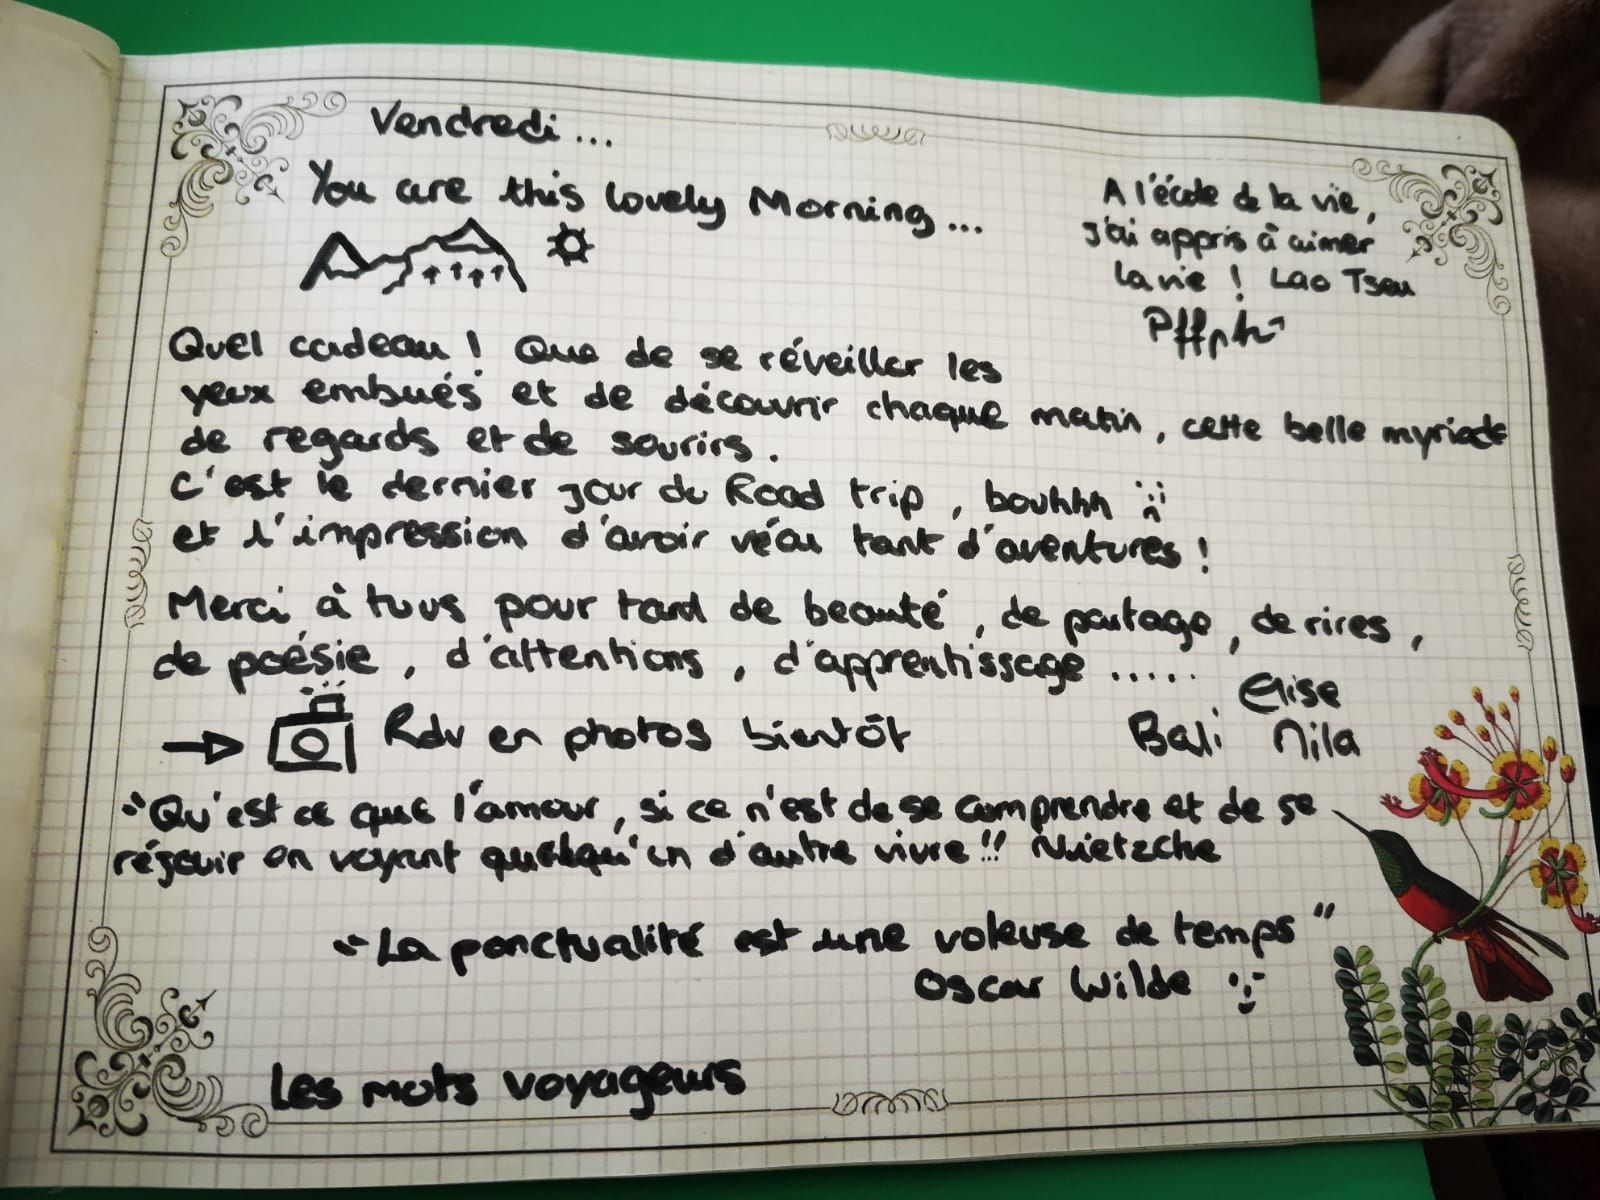 Vendredi...
You are this lovely Morning...
A l'école de la vie,
j'ai appris à aimer
la vie ! Lao Tseu
Quel cadeau ! Que de se réveiller les
yeux embués et de découvrir chaque matin, cette belle myriade
de regards et de sourirs.
C'est le dernier jour du Road trip, bouhhh :(
et l'impression d'avoir vécu tant d'aventures !
Merci à tous pour tant de beauté, de partage, de rires,
de poésie, d'attentions, d'apprentissage .....
Elise
Bali Nila
→ Rdv en photos bientôt
"Qu'est ce que l'amour, si ce n'est de se comprendre et de se
réjouir en voyant quelqu'un d'autre vivre !! Nietzche
"La ponctualité est une voleuse de temps"
Oscar Wilde :)
Les mots voyageurs